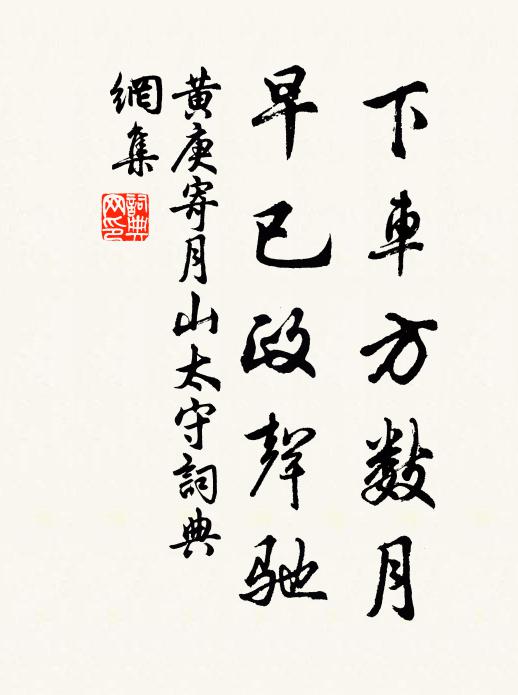 下車方數月
早已政聲馳
黄庚寄月山太守詞典
網集
詞典
网印